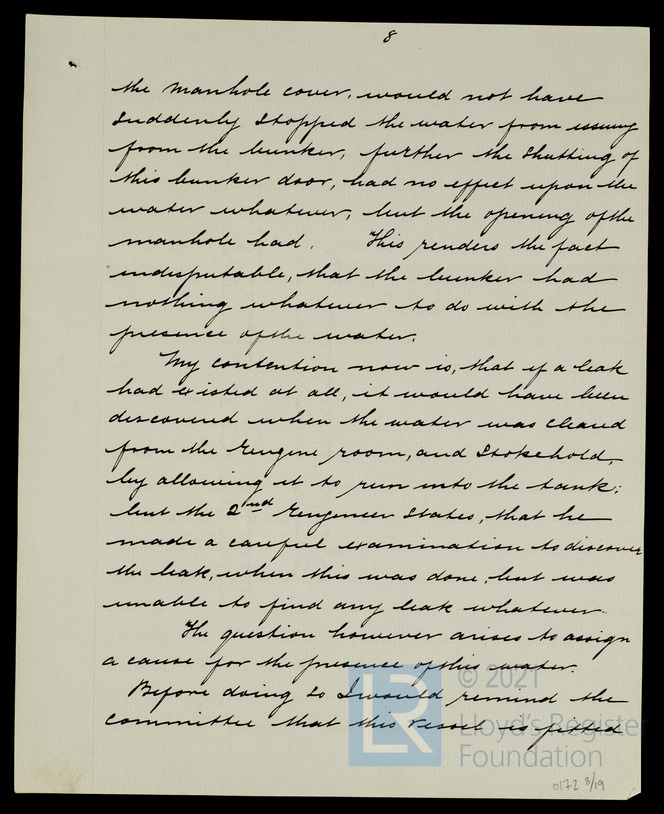 8
the manhole cover, would not have
suddenly stopped the water from issuing
from the bunker, further the shutting of
this bunker door, had no effect upon the
water whatever, but the opening of the
manhole had. This renders the fact
indisputable, that the bunker had
nothing whatever to do with the
presence of the water.
My contention now is, that if a leak
had existed at all, it would have been
discovered when the water was cleared
from the Engine room, and Stokehold,
by allowing it to run into the tank;
but the 2nd Engineer states, that he
made a careful examination to discover
the leak, when this was done, but was
unable to find any leak whatever.
The question however arises to assign
a cause for the presence of this water.
Before doing so I would remind the
committee that this vessel is fitted
LR
© 2021
Lloyd's Register
Foundation
0172 8/19